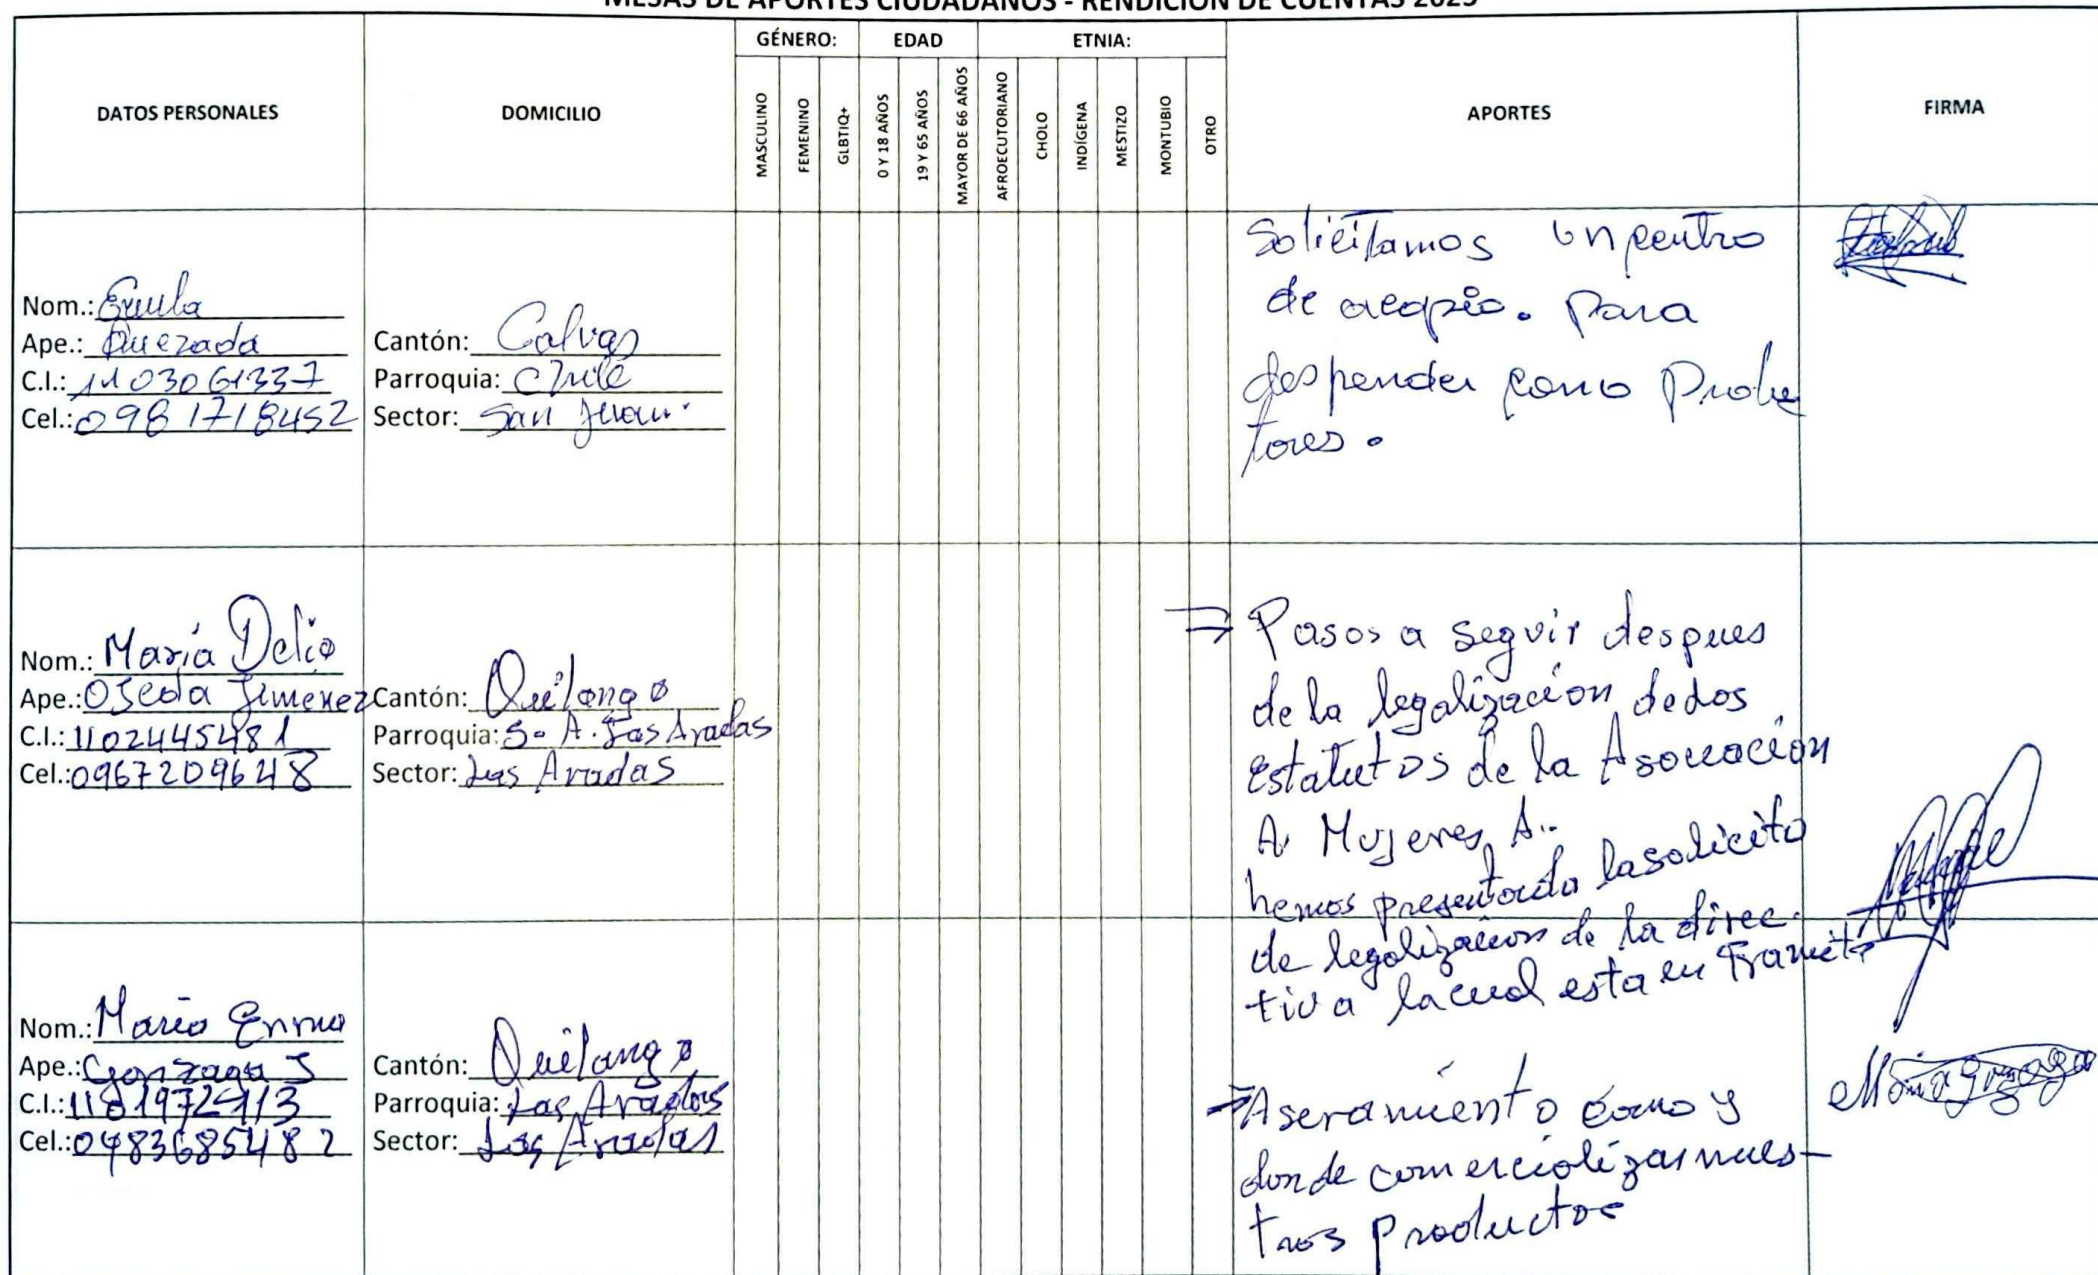 MESAS DE APORTES CIUDADANOS - RENDICIÓN DE CUENTAS 2025
DATOS PERSONALES
DOMICILIO
GÉNERO:
EDAD
ETNIA:
MASCULINO
FEMENINO
GLBTIQ+
0 Y 18 AÑOS
19 Y 65 AÑOS
MAYOR DE 66 AÑOS
AFROECUTORIANO
CHOLO
INDÍGENA
MESTIZO
MONTUBIO
OTRO
APORTES
FIRMA
Nom.:
Ape.: Quezada
C.I.: 1103061337
Cel.: 0981718452
Cantón: Calvas
Parroquia: Chile
Sector: San Juan
Solicitamos un centro
de acopio. Para
despender como Produ
tores.
Nom.: María Delia
Ape.: Ojeda Jimenez
C.I.: 1102445481
Cel.: 0967209648
Cantón: Quilanga
Parroquia: S. A. Las Aradas
Sector: Las Aradas
Pasos a seguir despues
de la legalización de los
Estatutos de la Asociación
A. Mujeres A..
hemos presentado la solicito
de legalización de la direc-
tiva la cual esta en Tramite
Nom.: María
Ape.: Gonzaga J
C.I.:
Cel.: 0983685482
Cantón: Quilanga
Parroquia: Las Aradas
Sector: Las Aradas
Aseramiento como y
donde comercializar nues-
tros productos